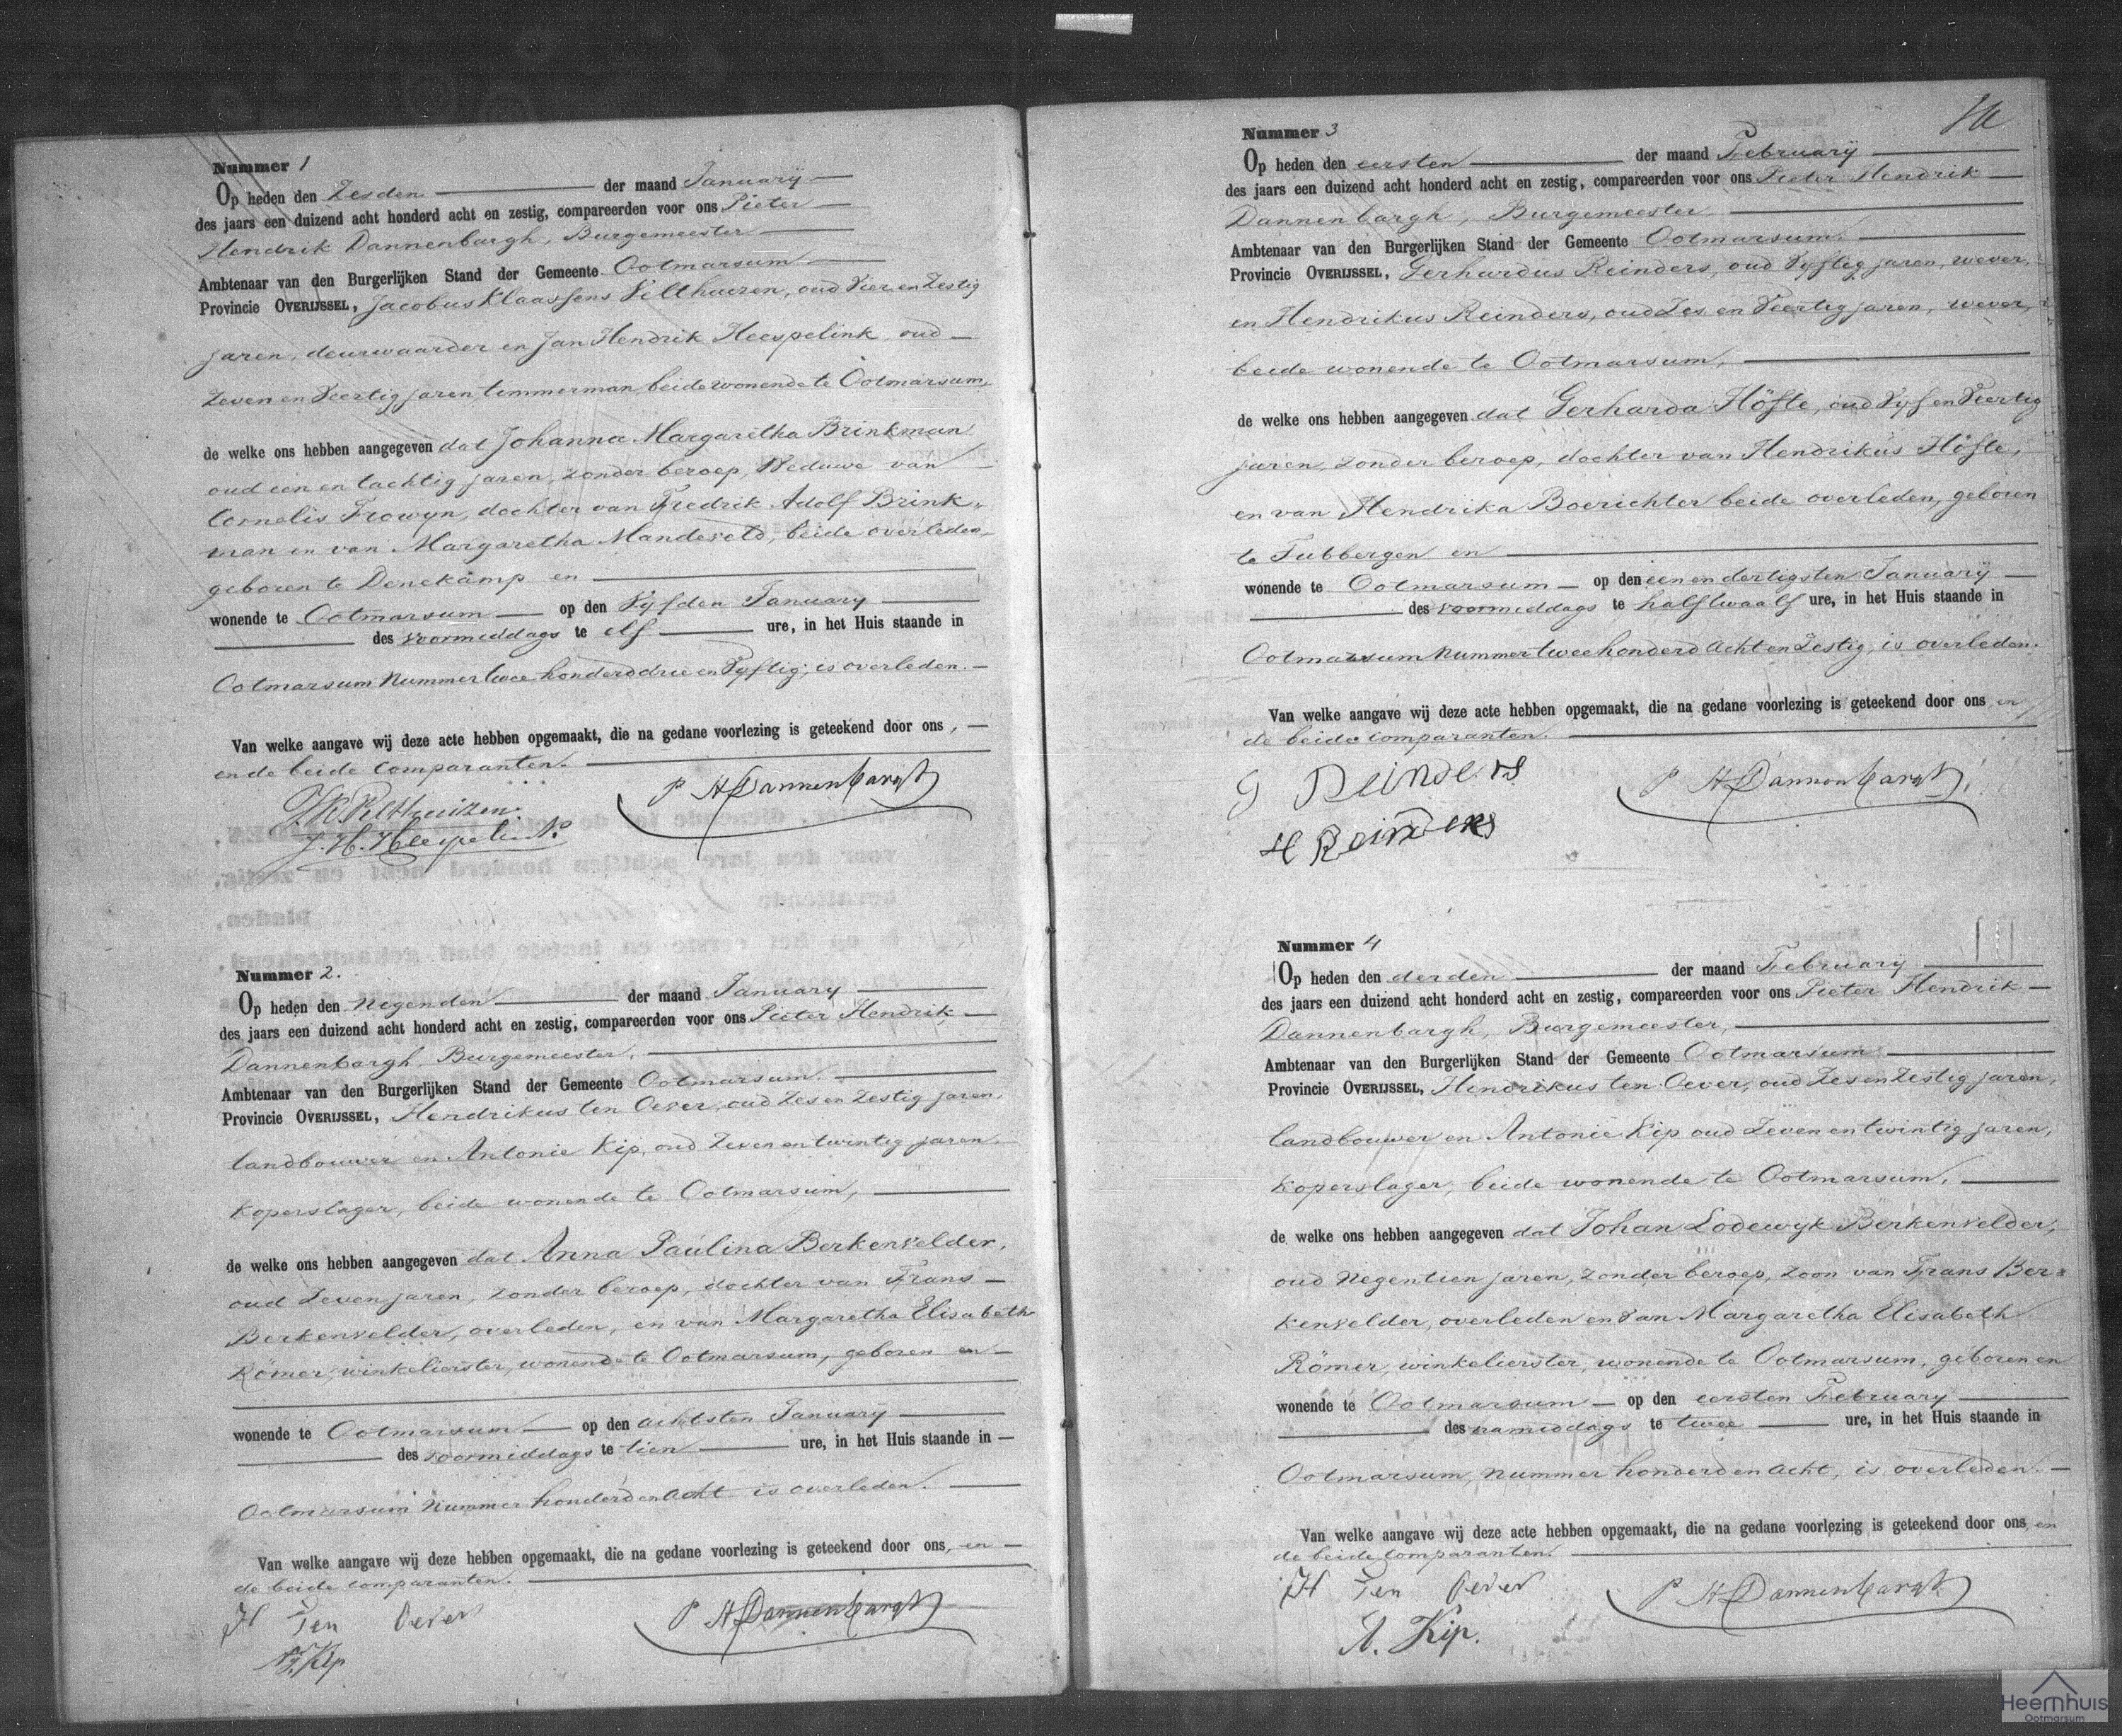 Nummer 1
Op heden den Zesden der maand Januarij
des jaars een duizend acht honderd acht en zestig, compareerden voor ons Pieter
Hendrik Dannenbargh, Burgemeester
Ambtenaar van den Burgerlijken Stand der Gemeente Ootmarsum
Provincie OVERIJSSEL, Jacobus Klaassens Vilthuizen, oud Vier en Zestig
jaren, deurwaarder en Jan Hendrik Heespelink oud
Zeven en Veertig jaren, timmerman, beide wonende te Ootmarsum,
de welke ons hebben aangegeven dat Johanna Margaretha Brinkman
oud een en tachtig jaren, zonder beroep, Weduwe van
Cornelis Frowyn, dochter van Fredrik Adolf Brink-
man en van Margaretha Mandeveld, beide overleden,
geboren te Denekamp en
wonende te Ootmarsum op den Vyfden January
des voormiddags te elf ure, in het Huis staande in
Ootmarsum Nummer twee honderd drie en Vyftig, is overleden.
Van welke aangave wij deze acte hebben opgemaakt, die na gedane voorlezing is geteekend door ons,
en de beide Comparanten.
P H Dannenbargh
J. H. Heespelink
Nummer 2.
Op heden den Negenden der maand January
des jaars een duizend acht honderd acht en zestig, compareerden voor ons Pieter Hendrik
Dannenbargh Burgemeester,
Ambtenaar van den Burgerlijken Stand der Gemeente Ootmarsum.
Provincie OVERIJSSEL, Hendrikus ten Oever, oud Zes en Zestig jaren,
landbouwer en Antonie Kip, oud Zeven en twintig jaren
Koperslager, beide wonende te Ootmarsum,
de welke ons hebben aangegeven dat Anna Paulina Berkenvelder,
oud Zeven jaren, zonder beroep, dochter van Frans
Berkenvelder, overleden, en van Margaretha Elisabeth
Römer, winkelierster, wonende te Ootmarsum, geboren en
wonende te Ootmarsum op den achtsten January
des voormiddags te tien ure, in het Huis staande in
Ootmarsum Nummer honderd en Acht is overleden.
Van welke aangave wij deze hebben opgemaakt, die na gedane voorlezing is geteekend door ons, en
de beide comparanten.
H Ten Oever
P H Dannenbargh
A. Kip
Nummer 3
Op heden den eersten der maand Februarij
des jaars een duizend acht honderd acht en zestig, compareerden voor ons Pieter Hendrik
Dannenbargh, Burgemeester
Ambtenaar van den Burgerlijken Stand der Gemeente Ootmarsum.
Provincie OVERIJSSEL, Gerhardus Reinders, oud Vyftig jaren, wever,
en Hendrikus Reinders, oud Zes en Veertig jaren, wever,
beide wonende te Ootmarsum,
de welke ons hebben aangegeven dat Gerharda Höfte, oud Vyf en Veertig
jaren, zonder beroep, dochter van Hendrikus Höfte,
en van Hendrika Boerichter beide overleden, geboren
te Tubbergen en
wonende te Ootmarsum op den een en dertigsten Januarij
des voormiddags te half twaalf ure, in het Huis staande in
Ootmarsum Nummer twee honderd Acht en Zestig, is overleden.
Van welke aangave wij deze acte hebben opgemaakt, die na gedane voorlezing is geteekend door ons en
de beide Comparanten.
G Reinders
P H Dannenbargh
H Reinders
Nummer 4
Op heden den derden der maand Februarij
des jaars een duizend acht honderd acht en zestig, compareerden voor ons Pieter Hendrik
Dannenbargh, Burgemeester,
Ambtenaar van den Burgerlijken Stand der Gemeente Ootmarsum
Provincie OVERIJSSEL, Hendrikus ten Oever, oud Zes en Zestig jaren,
landbouwer en Antonie Kip oud Zeven en twintig jaren,
Koperslager, beide wonende te Ootmarsum,
de welke ons hebben aangegeven dat Johan Lodewyk Berkenvelder,
oud Negentien jaren, zonder beroep, zoon van Frans Ber=
kenvelder, overleden en Van Margaretha Elisabeth
Römer, winkelierster, wonende te Ootmarsum, geboren en
wonende te Ootmarsum op den eersten February
des namiddags te twee ure, in het Huis staande in
Ootmarsum, nummer honderd en Acht, is overleden.
Van welke aangave wij deze acte hebben opgemaakt, die na gedane voorlezing is geteekend door ons en
de beide comparanten.
H Ten Oever
P H Dannenbargh
A. Kip.
Heemhuis
Ootmarsum